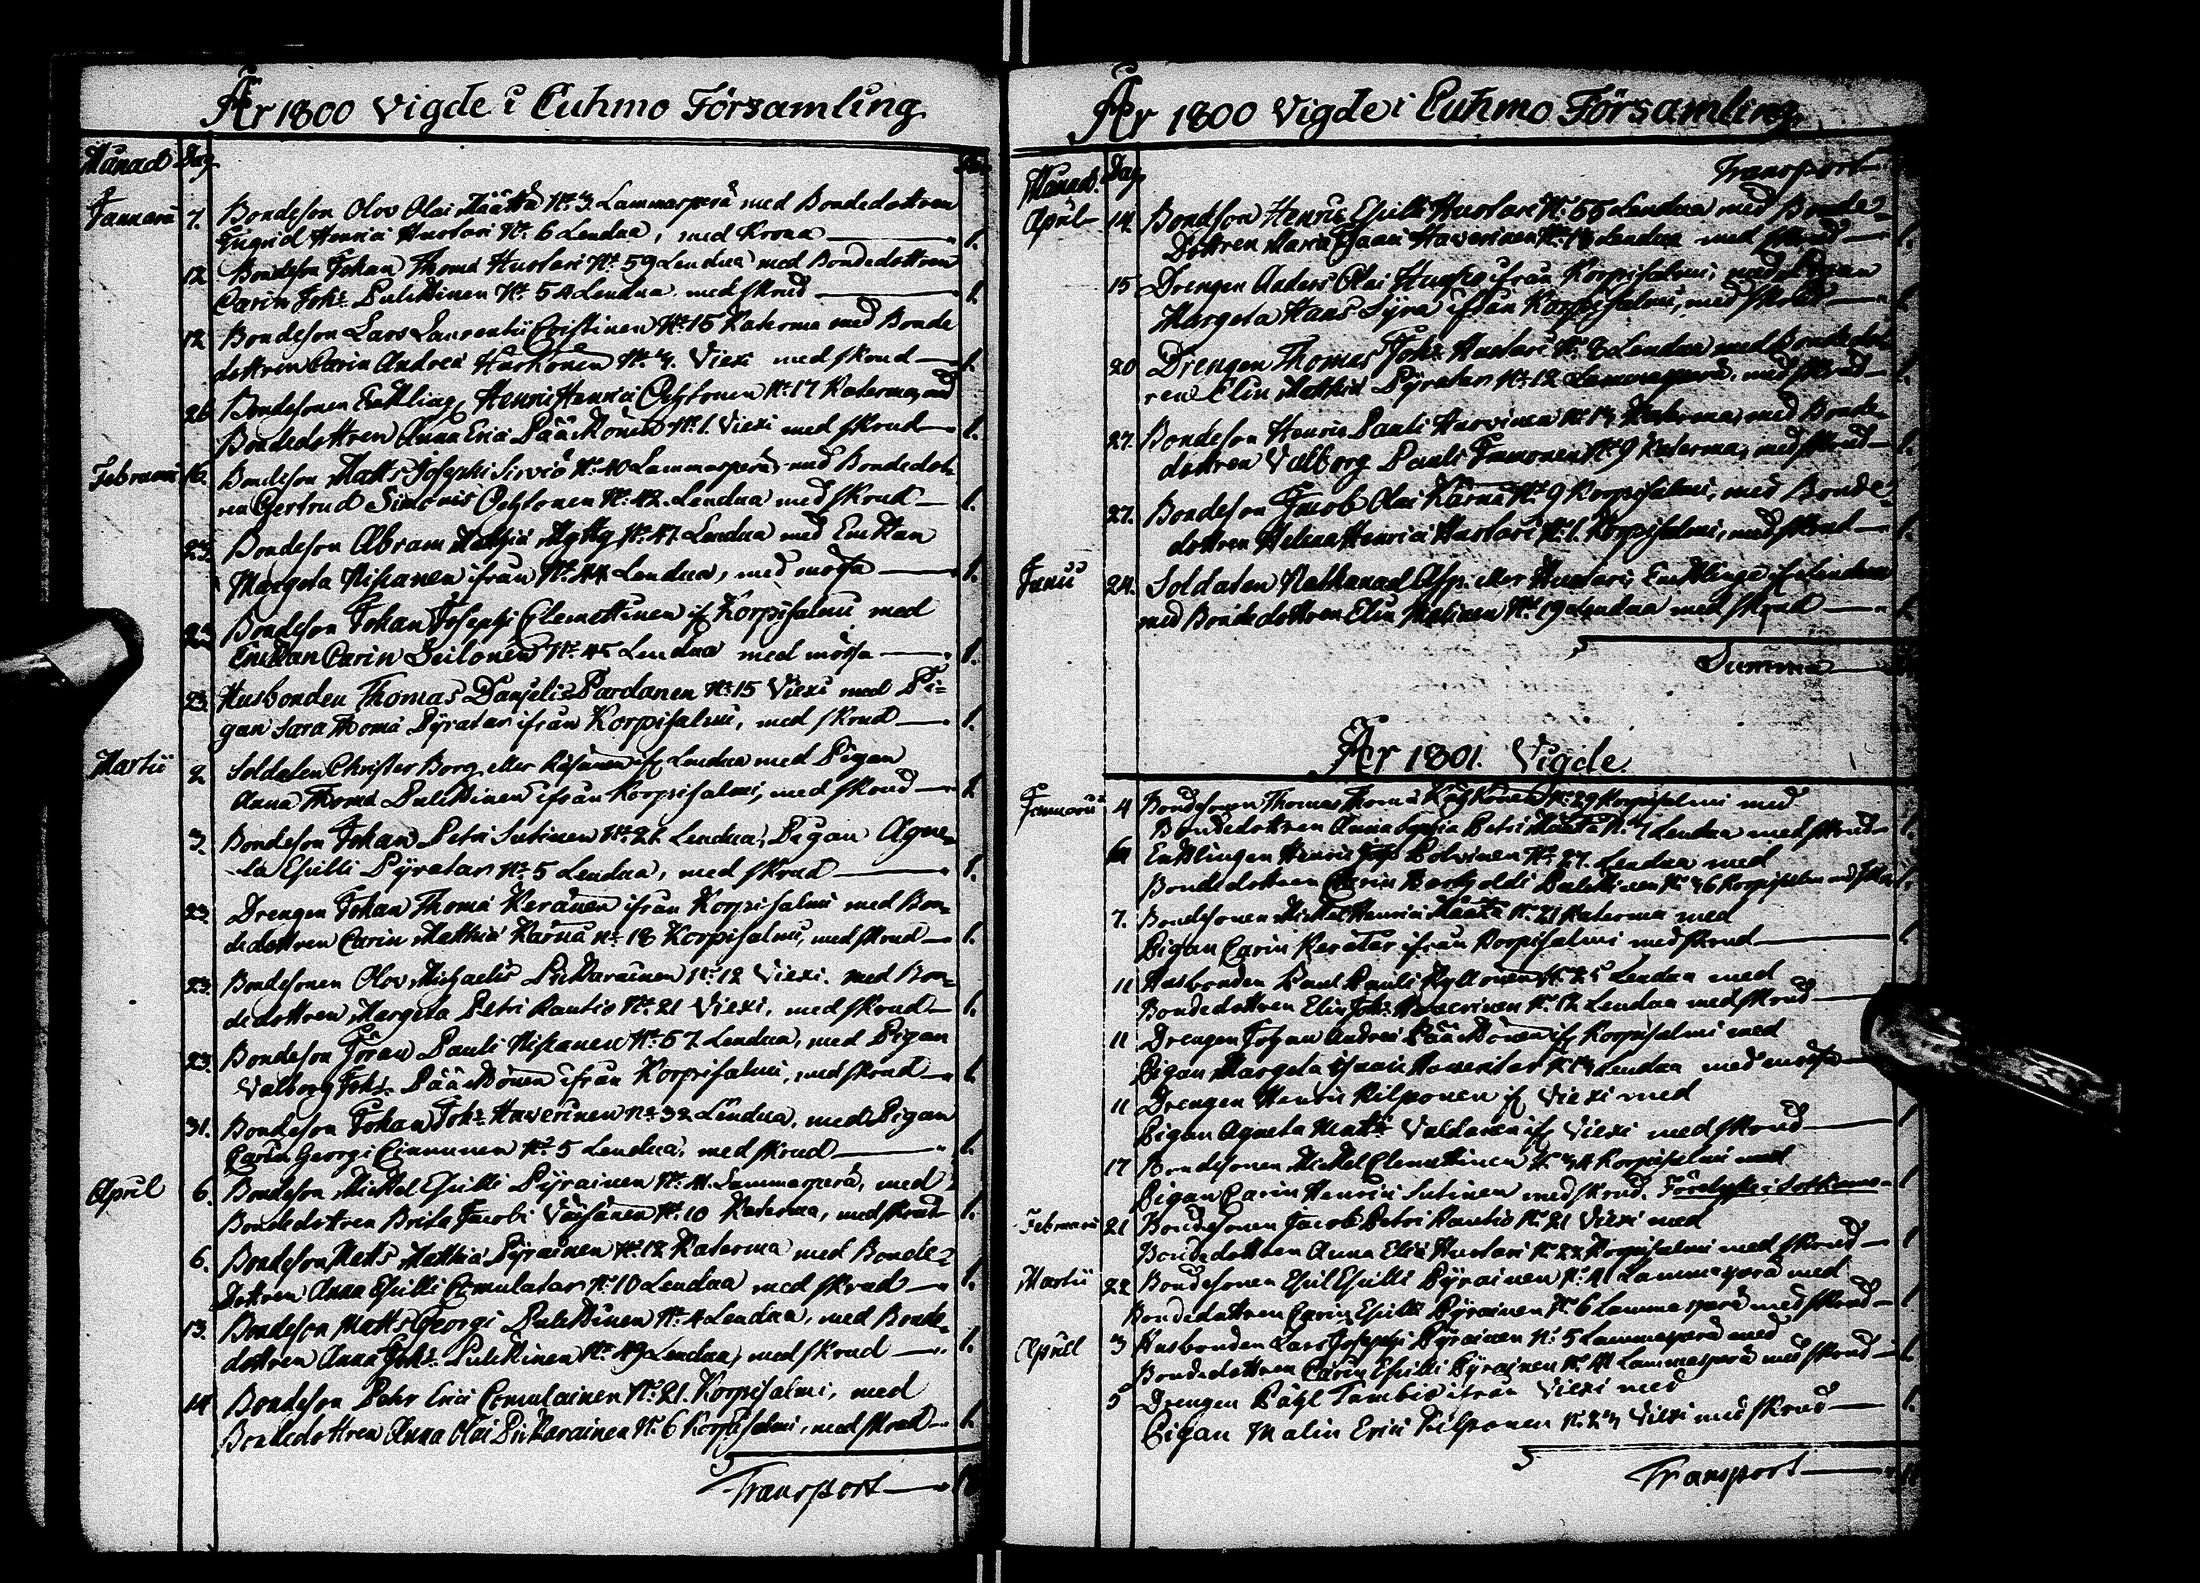 År 1800 Vigde i Cuhmo Församling
Månad Dag
Januarii 7. Bondeson Olov Olai Määttä No. 3 Lammasperä med Bondedottren
Ingrid Henrici Huotari No. 6 Lendua, med Krona — 1.
12 Bondeson Johan Thomæ Huotari No. 59 Lendua med Bondedottren
Carin Johs. Pulkkinen No. 54 Lendua med skrud — 1.
12 Bondeson Lars Laurentii Cristinen No. 15 Katerma med Bonde
dottren Carin Andreæ Huskonen No. 4. Viexi med skrud — 1.
26 Bondesonen Enkling Henric Henrici Ohtonen No. 17 Katerma, med
Bondedottren Anna Erici Pääkkönen No. 1. Viexi med skrud — 1.
Februarii 16. Bondeson Matts Josephi Sirviö No. 10 Lammasperä, med Bondedott
ren Gertrud Simonis Ohtonen No. 42. Lendua med skrud — 1.
23. Bondeson Abram Matthiæ No. 47 Lendua med Enkan
Margeta Niskanen ifrån No. 44 Lendua, med mössa — 1.
23 Bondeson Johan Josephi Clemettinen if. Korpisalmi med
Enkan Carin Seilonen No. 45 Lendua med mössa — 1.
23. Husbonden Thomas Danjelis Pardanen No. 15 Viexi med Pi-
gan Sara Thomæ Pyratar ifrån Korpisalmi, med skrud — 1.
Martii 2. Soldaten Christer Borg eller Räisänen if. Lendua med Pigan
Anna Thomæ Pulkkinen ifrån Korpisalmi, med skrud — 1
3. Bondeson Johan Petri Sutinen No. 21. Lendua, Pigan Agne-
ta Eskilli Pyratar No. 5 Lendua, med skrud — 1.
23. Drengen Johan Thomæ Keränen ifrån Korpisalmi med Bon-
dedottren Carin Matthiæ Kärnä No. 18 Korpisalmi, med skrud — 1.
23. Bondesonen Olov Michaelis Pikkarainen No. 12 Viexi. med Bon-
dedottren Margeta Petri Rautio No. 21 Viexi, med skrud — 1.
23. Bondeson Jöran Pauli Niskanen No. 57. Lendua, med Pigan
Valborg Johs. Pääkkönen ifrån Korpisalmi, med skrud — 1.
31. Bondeson Johan Johs. Haverinen No. 32 Lendua, med Pigan
Carin Georgi Cinnunen No. 5 Lendua, med skrud — 1.
April 6. Bondeson Mickel Eskilli Pyrainen No. 4. Lammasperä, med
Bondedottren Brita Jacobi Väisänen No. 10 Katerma, med skrud 1.
6. Bondeson Matts Matthiæ Pyrainen No. 12 Katerma med Bonde-
dottren Anna Eskilli Comulatar No. 10 Lendua med skrud — 1.
13. Bondeson Matts Georgi Pulkkinen No. 4 Lendua, med Bonde-
dottren Anna Johs. Pulkkinen No. 49 Lendua, med skrud — 1.
14 Bondeson Pehr Erici Comulainen No. 21. Korpisalmi, med
Bondedottren Anna Olai Pikkarainen No. 6 Korpisalmi, med skrud — 1.
Transport — 18
År 1800 Vigde i Cuhmo Församling
Månad. Dag
Transport
April 14. Bondson Henric Eskilli Huotari No. 55 Lendua med Bonde-
Dottren Maria Haverinen Lendua med skrud — 1.
15 Drengen Anders Olai ifrån Korpisalmi, med Pigan
Margeta Hans Syra ifrån Korpisalmi, med skrud — 1.
20 Drengen Thomas Johs. Huotari No. Lendua med Bondedot
ren Elin Matthiæ Pyratar No. 12 Lammasperä, med skrud — 1.
27. Bondeson Henric Pauli Huovinen Katerma, med Bonde-
dottren Valborg Pauli No. 9 Katerma, med skrud — 1.
27. Bondeson Jacob Olai Kärnä No. 9 Korpisalmi, med Bonde-
dottren Helena Henrici Huotari No. 1. Korpisalmi, med skrud — 1.
Junii 24. Soldaten Nathanael Asp. eller Huotari, Enklinge if. Lendua
med Bondedottren Elin No. 19 Lendua med skrud — 1.
Summa
År 1801. Vigde.
Januarii 4 Bondesonen Thomas Thomæ No. 29 Korpisalmi med
Bondedottren Anna Sophia Petri Määttä Lendua med skrud 1.
6 Enklingen Henric Polvinen No. 27. Lendua med
Bondedottren Carin Bertholdi Pulkkinen Korpisalmi med skrud 1.
7. Bondesonen Mickel Henrici Määttä No. 21 Katerma med
Pigan Carin Kerätar ifrån Korpisalmi med skrud — 1.
11 Husbonden Paul Pauli Kyllönen No. 25 Lendua med
Bondedottren Elin Johs. Haverinen No. 12 Lendua med skrud
11 Drengen Johan Andreæ Pääkkönen if. Korpisalmi med
Pigan Margeta Haveritar Lendua med mössa —
11 Drengen Henric Kilponen if. Viexi med
Pigan Agneta Matts if. Viexi med skrud — 1
17 Bondesonen Mickel Clemettinen Korpisalmi med
Pigan Carin Henrici Sutinen med skrud. 1
Februarii 21 Bondesonen Jacob Petri Rautio No. 21 Viexi med
Bondedottren Anna Eliæ Huotari No. 22 Korpisalmi med skrud — 1
Martii 22 Bondesonen Eskil Eskilli Pyrainen No. 4 Lammasperä med
Bondedottren Carin Eskilli Pyrainen No. 6 Lammasperä med skrud — 1
April 3 Husbonden Lars Josephi Pyrainen No. 5 Lammasperä med
Bondedottren Carin Eskilli Pyrainen No. 41 Lammasperä med skrud — 1.
5 Drengen Påhl Tambio ifrån Viexi med
Pigan Malin Erici Kilponen Viexi med skrud — 1.
Transport